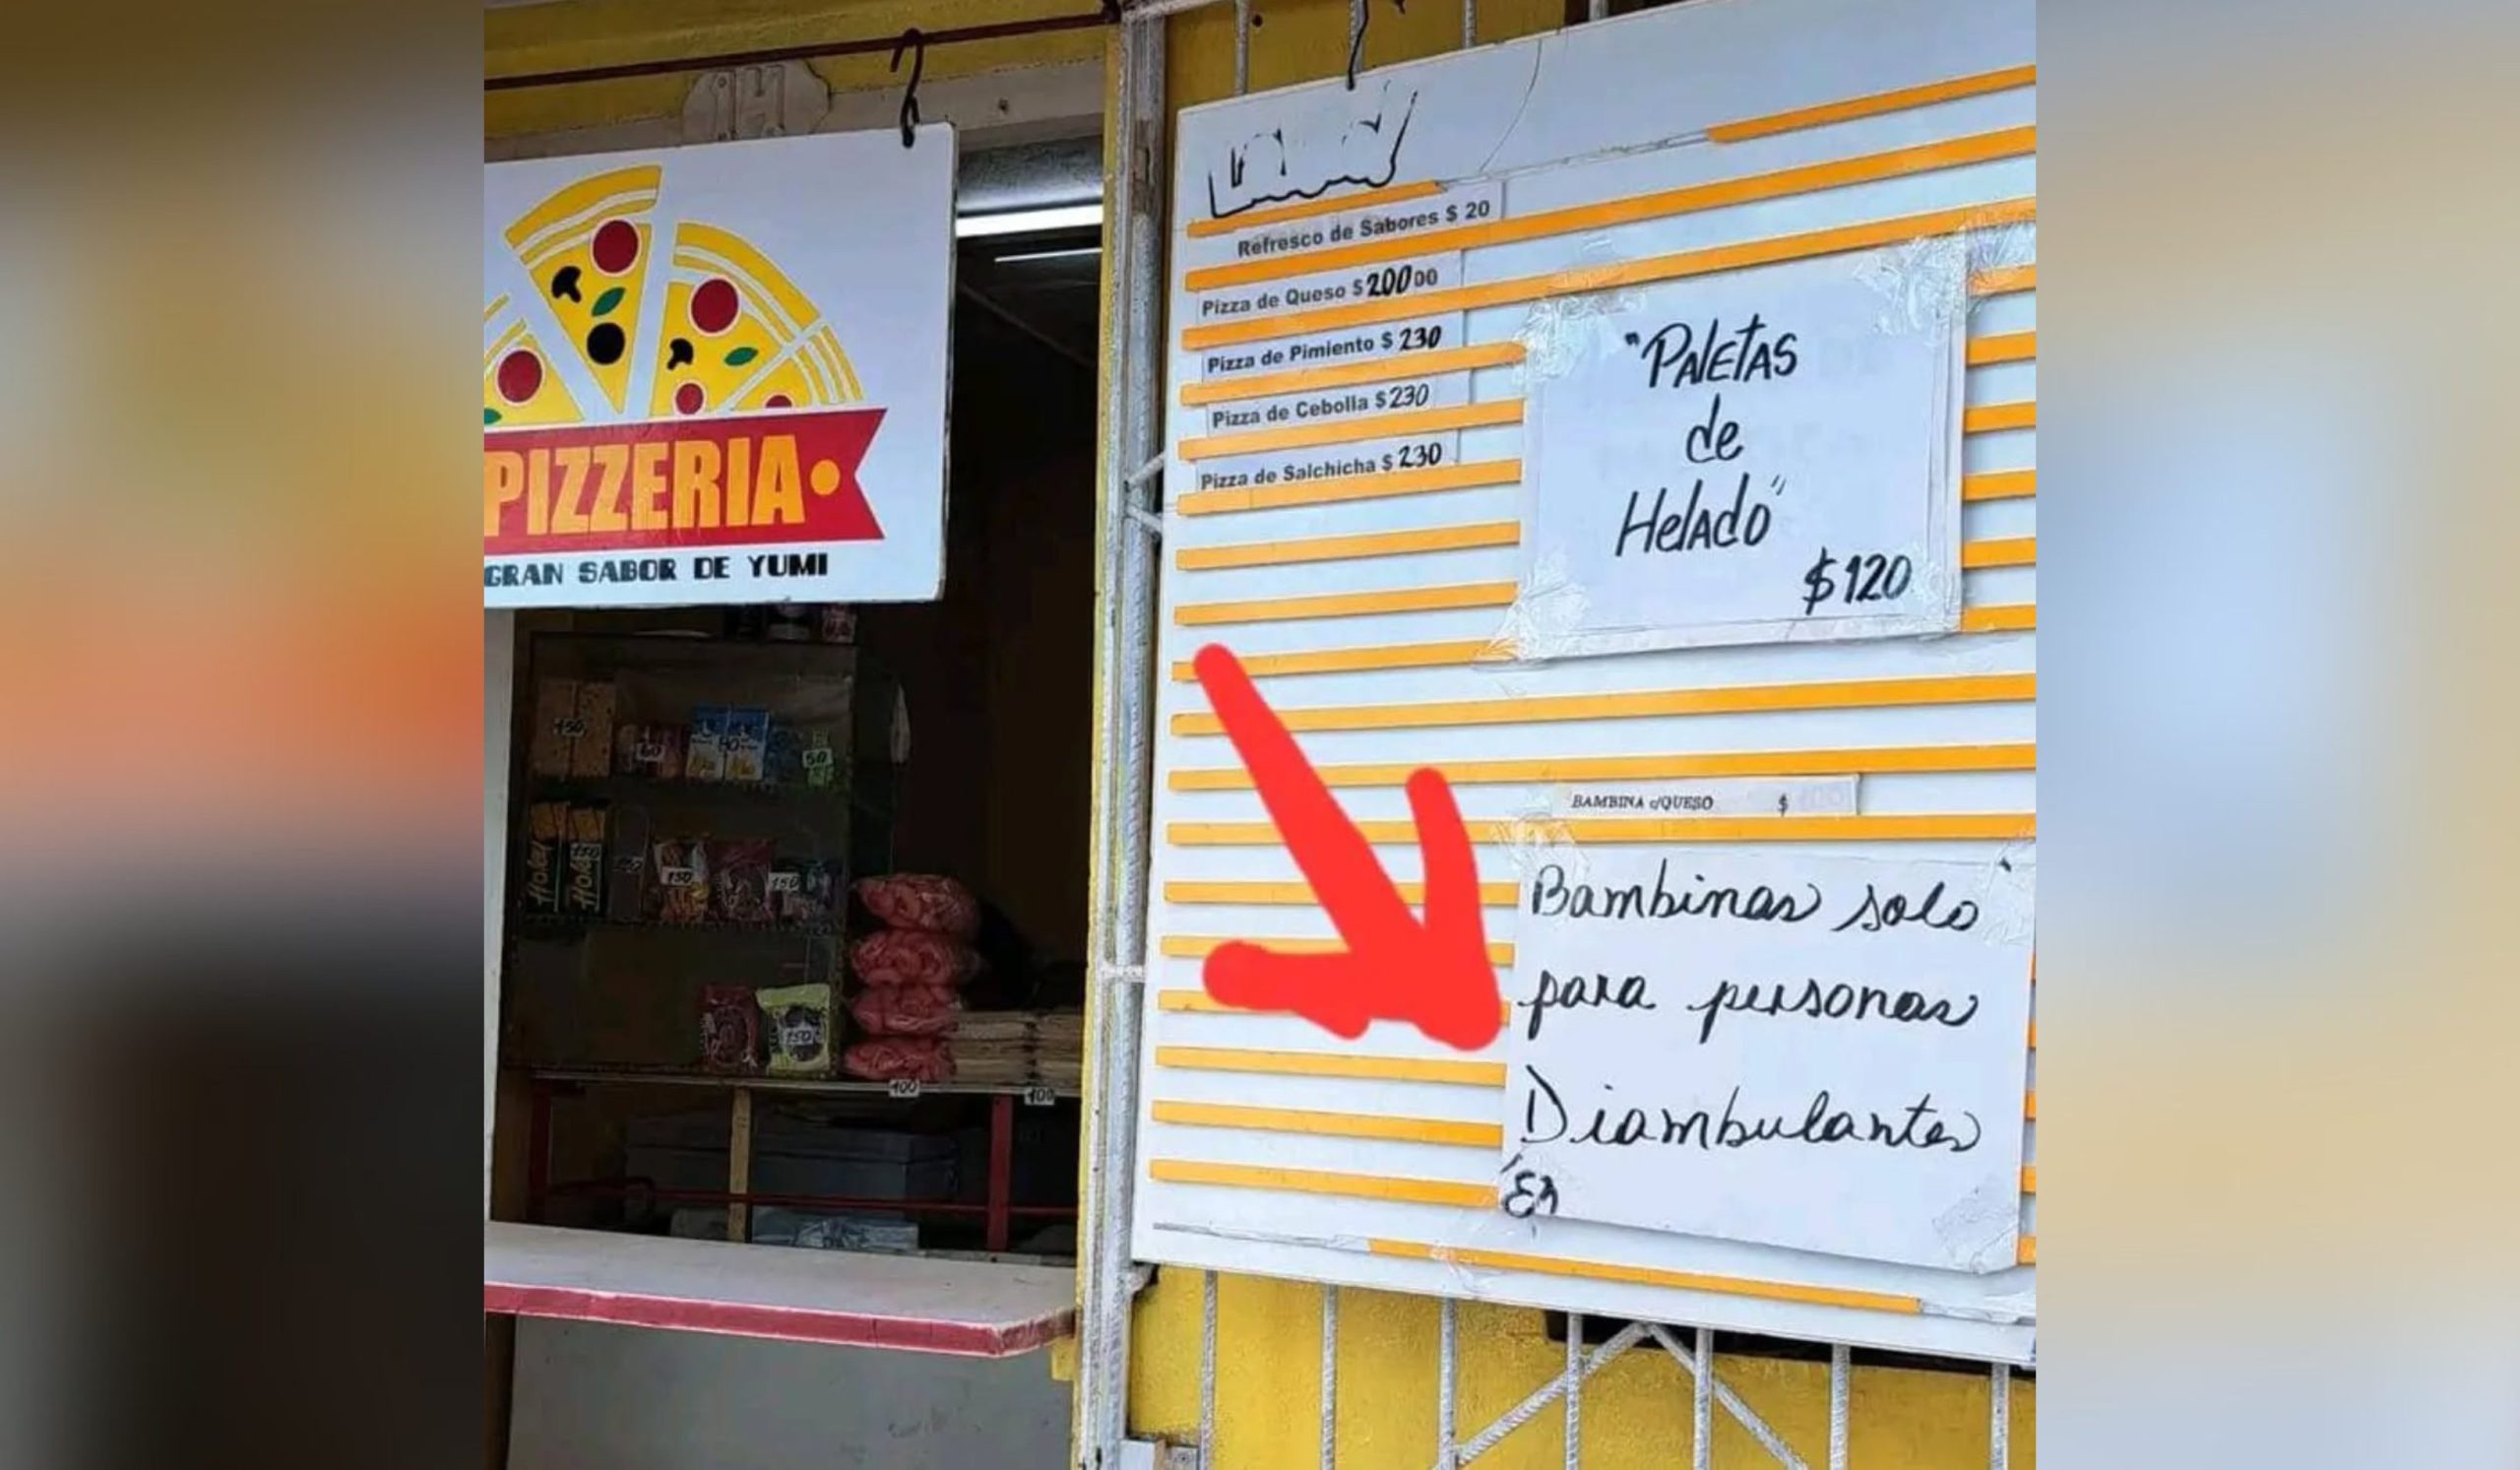 PIZZERIA
GRAN SABOR DE YUMI
Refresco de Sabores $ 20
Pizza de Queso $ 200 00
Pizza de Pimiento $ 230
Pizza de Cebolla $ 230
Pizza de Salchicha $ 230
"PALETAS
de
HELADO"
$120
BAMBINA c/QUESO $
Bambinas solo
para personas
Diambulantes
150
60
80
50
Hola
Hola
150
150
150
150
100
100